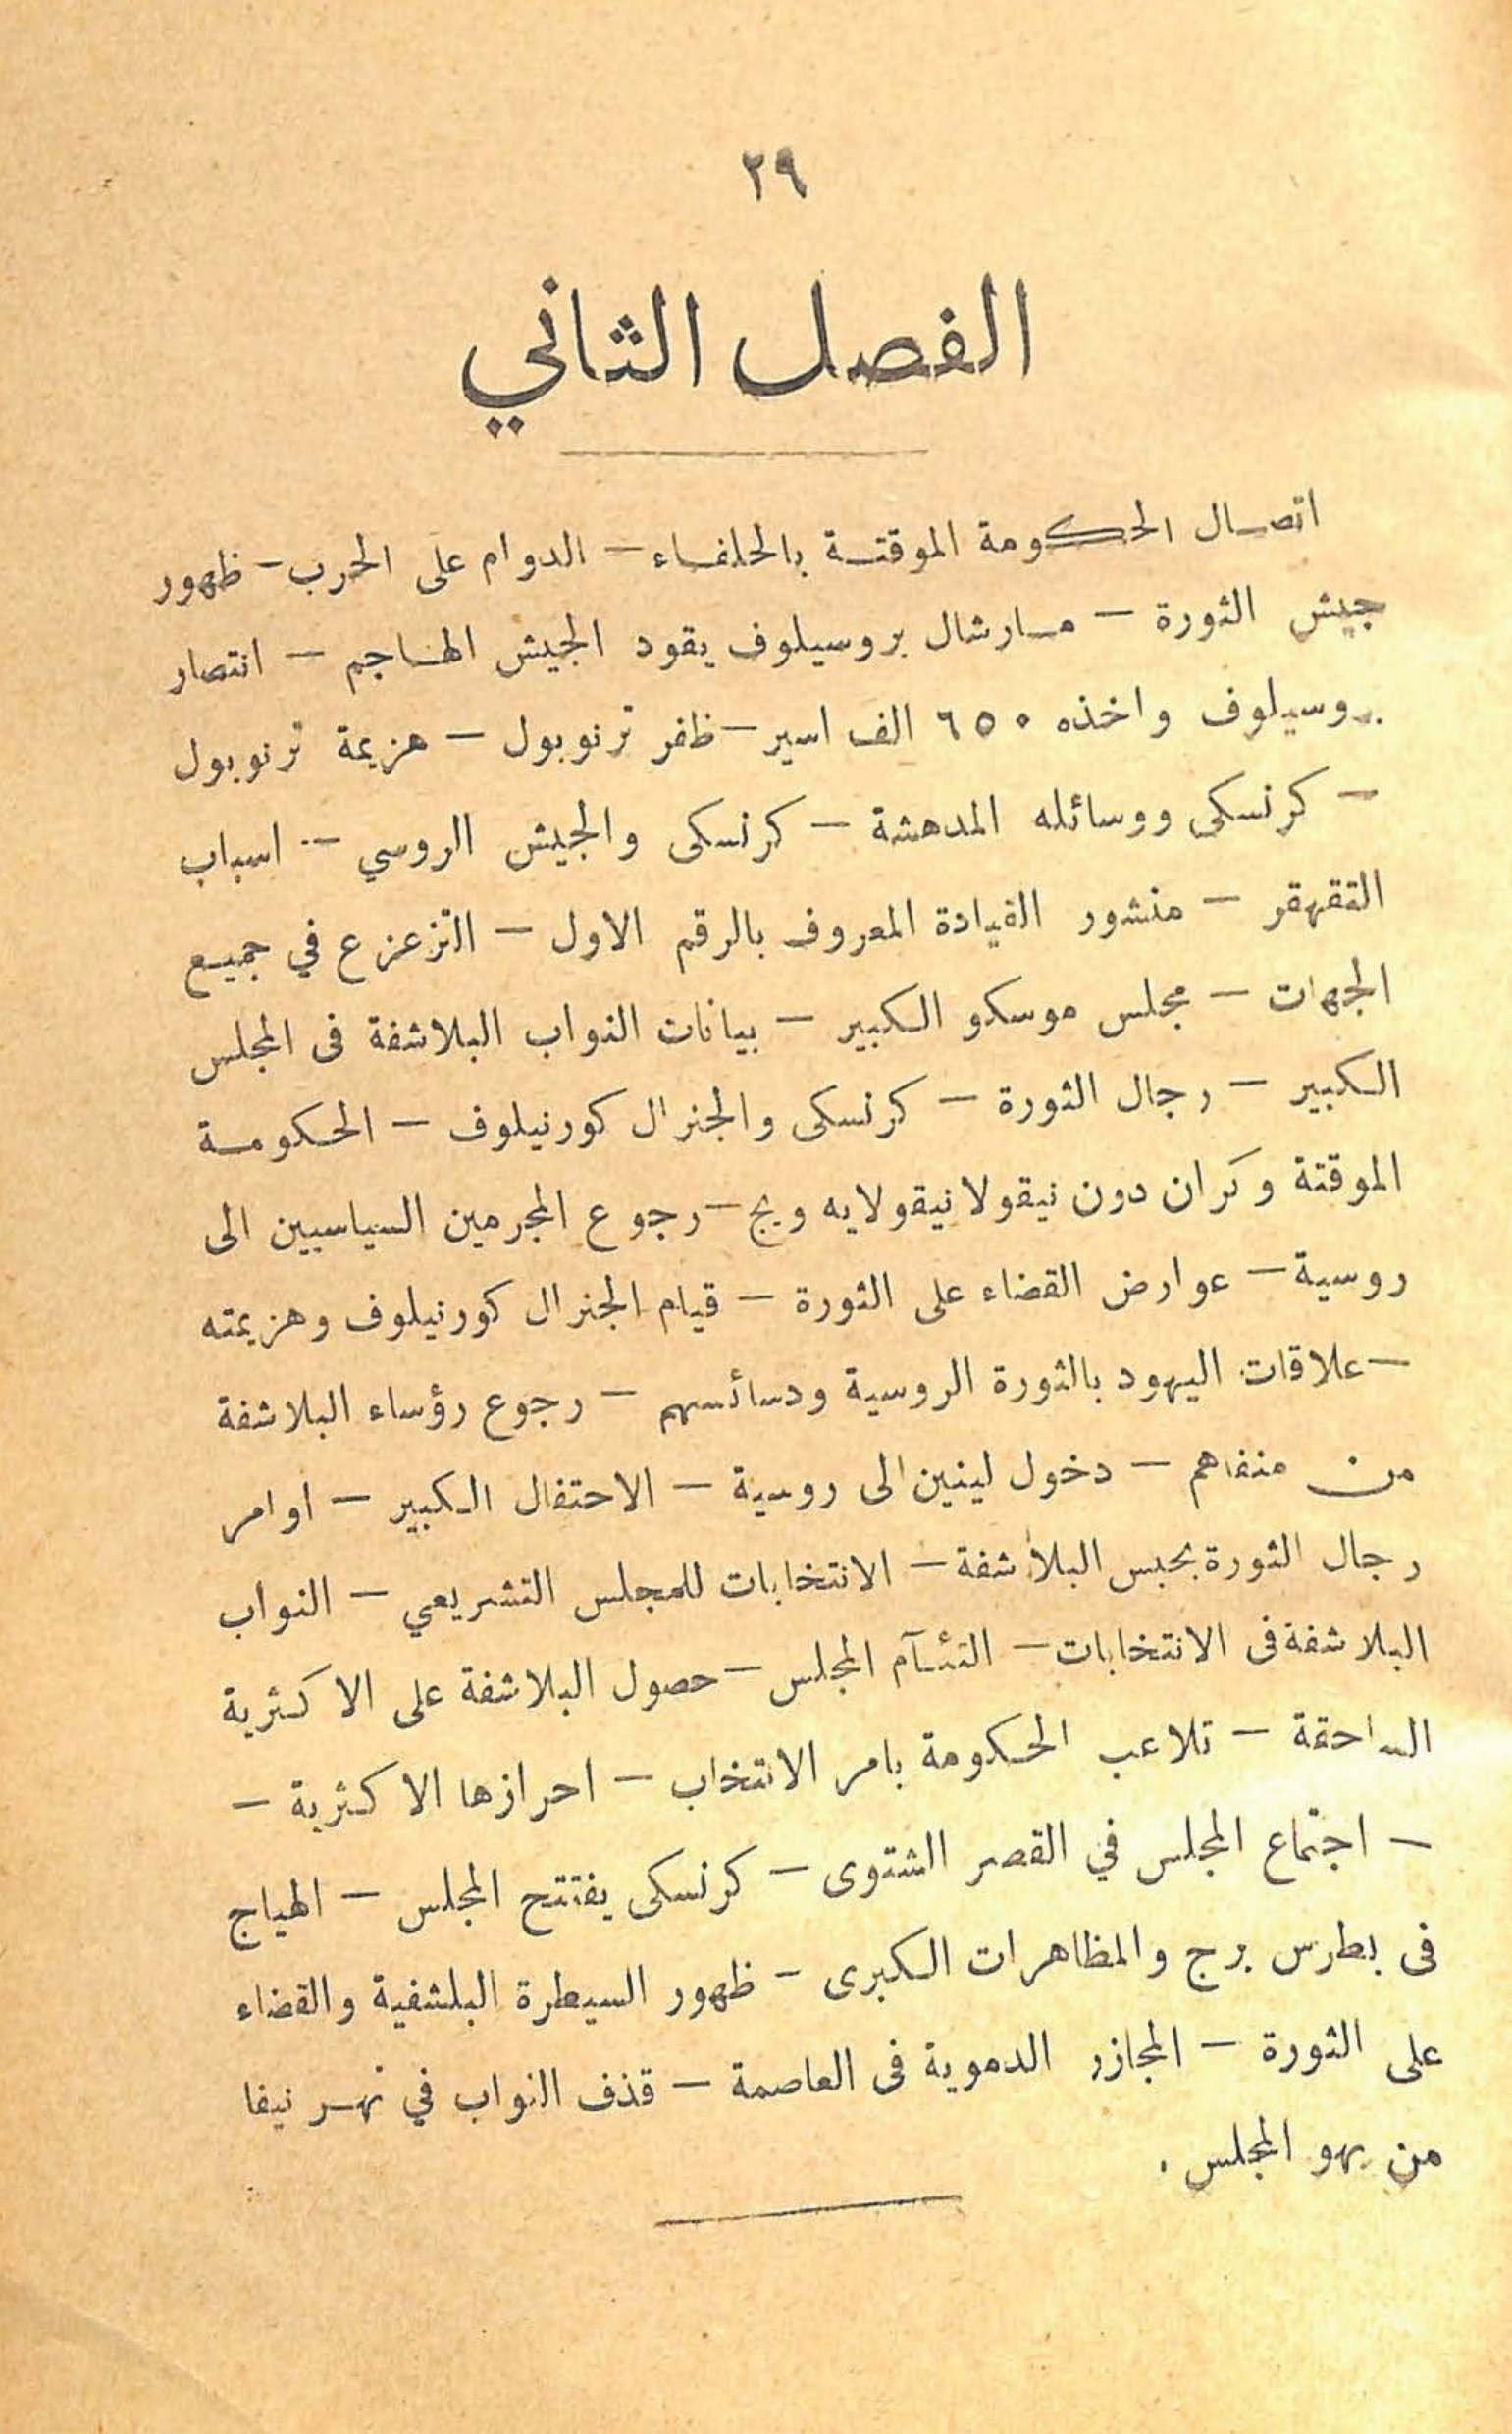 ٢٩
الفصل الثاني
اتصال الحكومة الموقتة بالحلفاء – الدوام على الحرب – ظهور
جيش الثورة – مارشال بروسيلوف يقود الجيش الهاجم – انتصار
بروسيلوف واخذه ٦٥٠ الف اسير – ظفر ترنوبول – هزيمة ترنوبول
– كرنسكى ووسائله المدهشة – كرنسكى والجيش الروسي – اسباب
التقهقر – منشور القيادة المعروف بالرقم الاول – التزعزع في جميع
الجهات – مجلس موسكو الكبير – بيانات النواب البلاشفة فى المجلس
الكبير – رجال الثورة – كرنسكى والجنرال كورنيلوف – الحكومة
الموقتة وكران دون نيقولا نيقولايه ويج – رجوع المجرمين السياسيين الى
روسية – عوارض القضاء على الثورة – قيام الجنرال كورنيلوف وهزيمته
– علاقات اليهود بالثورة الروسية ودسائسهم – رجوع رؤساء البلاشفة
من منفاهم – دخول لينين الى روسية – الاحتفال الكبير – اوامر
رجال الثورة بحبس البلاشفة – الانتخابات للمجلس التشريعي – النواب
البلاشفة فى الانتخابات – التئآم المجلس – حصول البلاشفة على الاكثرية
الساحقة – تلاعب الحكومة بامر الانتخاب – احرازها الاكثرية –
– اجتماع المجلس في القصر الشتوى – كرنسكى يفتتح المجلس – الهياج
فى بطرس برج والمظاهرات الكبرى – ظهور السيطرة البلشفية والقضاء
على الثورة – المجازر الدموية فى العاصمة – قذف النواب في نهر نيفا
من بهو المجلس .